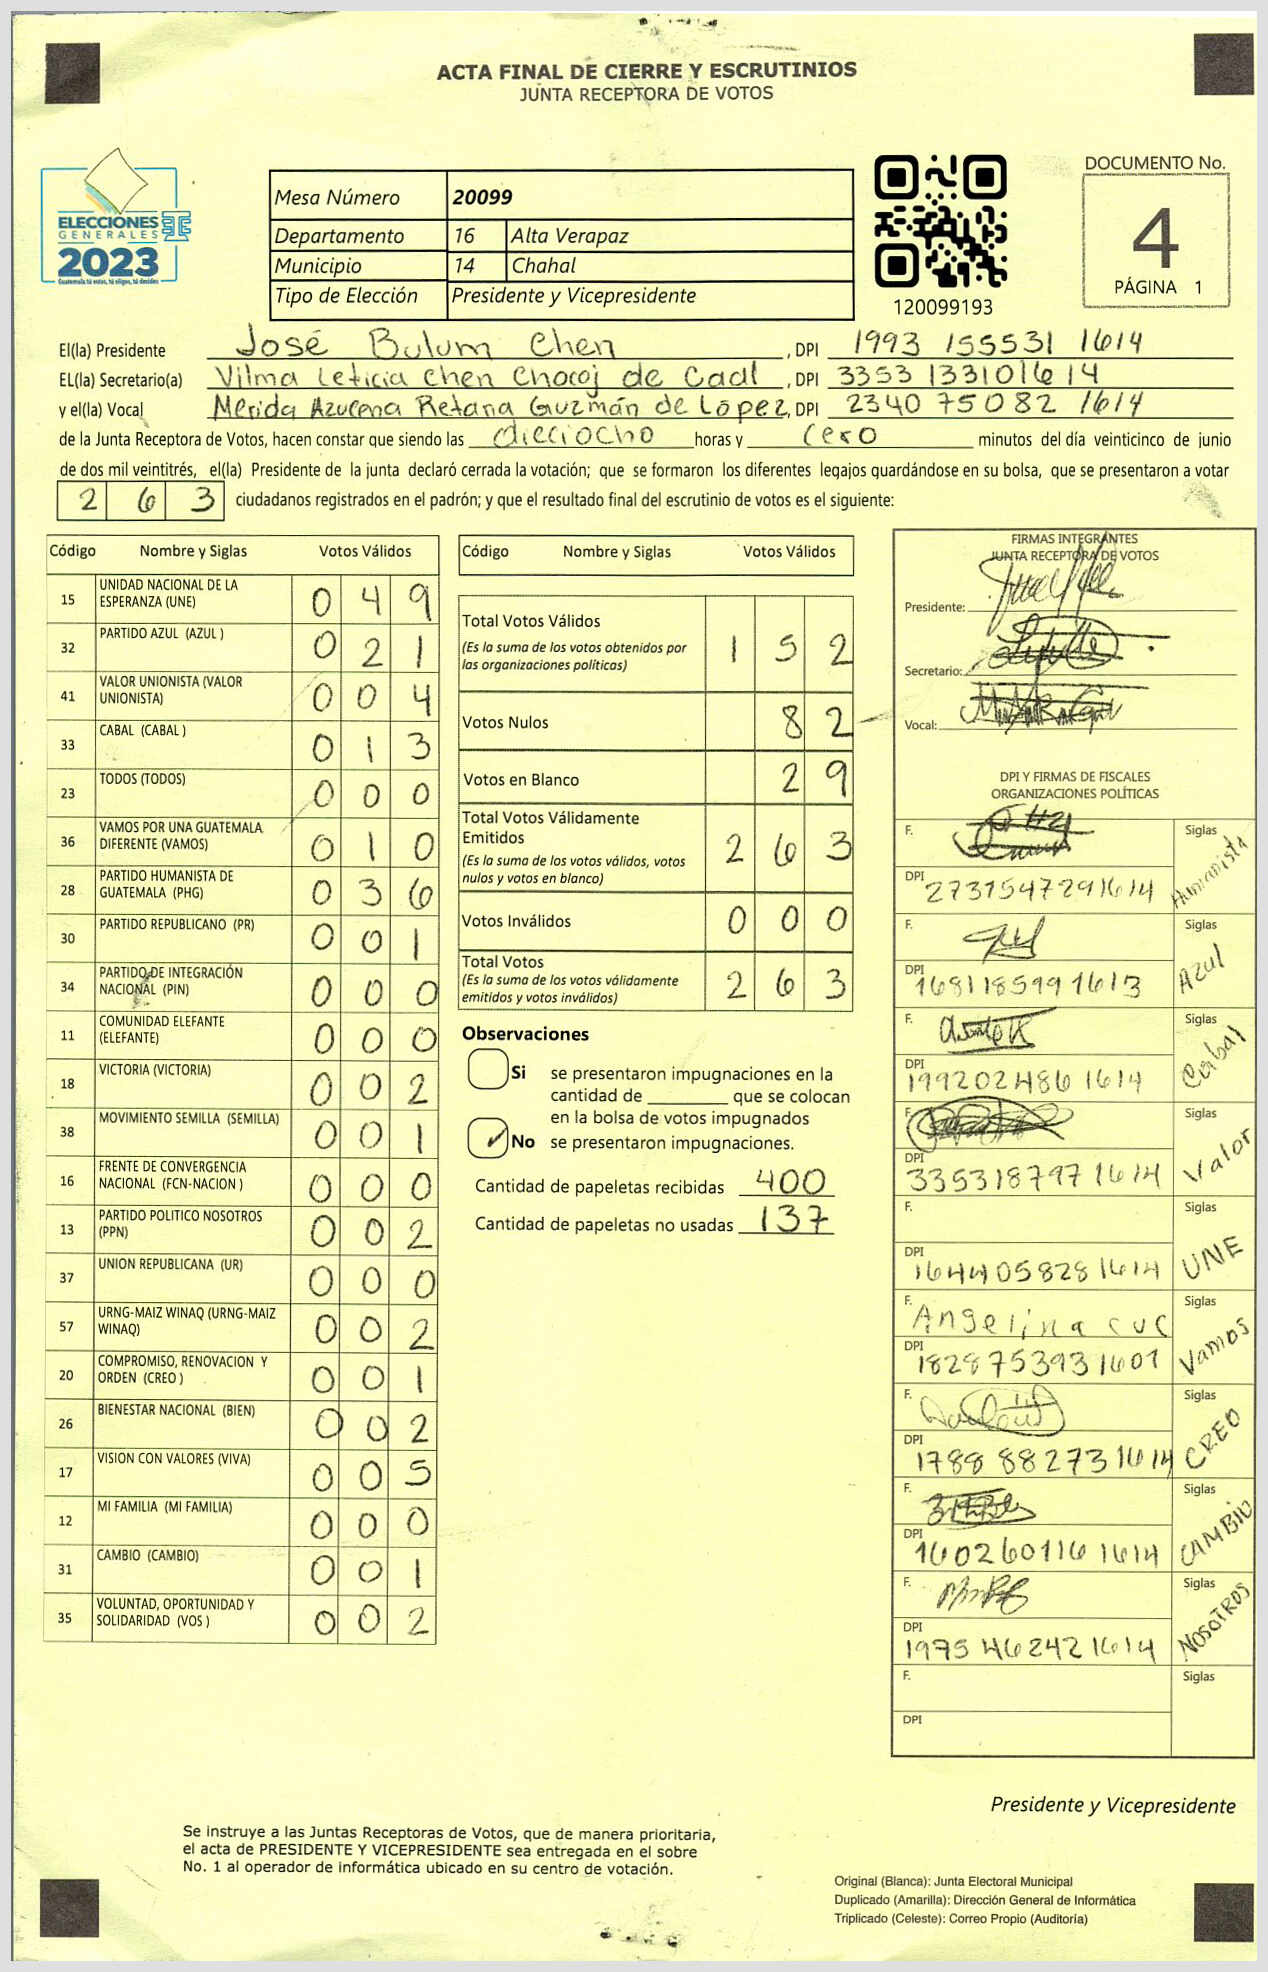 ACTA FINAL DE CIERRE Y ESCRUTINIOS
JUNTA RECEPTORA DE VOTOS
ELECCIONES
GENERALES
2023
Guatemala tú votas, tú eliges, tú decides
Mesa Número 20099
Departamento 16 Alta Verapaz
Municipio 14 Chahal
Tipo de Elección Presidente y Vicepresidente
120099193
DOCUMENTO No.
4
PÁGINA 1
El(la) Presidente José Bulum Chen , DPI 1993 155531 1614
EL(la) Secretario(a) Vilma Leticia Chen Chocoj de Caal , DPI 3353 133101614
y el(la) Vocal Mérida Azucena Retana Guzmán de López, DPI 2340 75082 1614
de la Junta Receptora de Votos, hacen constar que siendo las dieciocho horas y cero minutos del día veinticinco de junio
de dos mil veintitrés, el(la) Presidente de la junta declaró cerrada la votación; que se formaron los diferentes legajos quardándose en su bolsa, que se presentaron a votar
2 6 3 ciudadanos registrados en el padrón; y que el resultado final del escrutinio de votos es el siguiente:
Código Nombre y Siglas Votos Válidos
15 UNIDAD NACIONAL DE LA ESPERANZA (UNE) 0 4 9
32 PARTIDO AZUL (AZUL ) 0 2 1
41 VALOR UNIONISTA (VALOR UNIONISTA) 0 0 4
33 CABAL (CABAL ) 0 1 3
23 TODOS (TODOS) 0 0 0
36 VAMOS POR UNA GUATEMALA DIFERENTE (VAMOS) 0 1 0
28 PARTIDO HUMANISTA DE GUATEMALA (PHG) 0 3 6
30 PARTIDO REPUBLICANO (PR) 0 0 1
34 PARTIDO DE INTEGRACIÓN NACIONAL (PIN) 0 0 0
11 COMUNIDAD ELEFANTE (ELEFANTE) 0 0 0
18 VICTORIA (VICTORIA) 0 0 2
38 MOVIMIENTO SEMILLA (SEMILLA) 0 0 1
16 FRENTE DE CONVERGENCIA NACIONAL (FCN-NACION ) 0 0 0
13 PARTIDO POLITICO NOSOTROS (PPN) 0 0 2
37 UNION REPUBLICANA (UR) 0 0 0
57 URNG-MAIZ WINAQ (URNG-MAIZ WINAQ) 0 0 2
20 COMPROMISO, RENOVACION Y ORDEN (CREO ) 0 0 1
26 BIENESTAR NACIONAL (BIEN) 0 0 2
17 VISION CON VALORES (VIVA) 0 0 5
12 MI FAMILIA (MI FAMILIA) 0 0 0
31 CAMBIO (CAMBIO) 0 0 1
35 VOLUNTAD, OPORTUNIDAD Y SOLIDARIDAD (VOS ) 0 0 2
Código Nombre y Siglas Votos Válidos
Total Votos Válidos 1 5 2
(Es la suma de los votos obtenidos por
las organizaciones políticas)
Votos Nulos 8 2
Votos en Blanco 2 9
Total Votos Válidamente
Emitidos 2 6 3
(Es la suma de los votos válidos, votos
nulos y votos en blanco)
Votos Inválidos 0 0 0
Total Votos 2 6 3
(Es la suma de los votos válidamente
emitidos y votos inválidos)
Observaciones
Si se presentaron impugnaciones en la
cantidad de ________ que se colocan
en la bolsa de votos impugnados
No se presentaron impugnaciones.
Cantidad de papeletas recibidas 400
Cantidad de papeletas no usadas 137
FIRMAS INTEGRANTES
JUNTA RECEPTORA DE VOTOS
Presidente:
Secretario:
Vocal:
DPI Y FIRMAS DE FISCALES
ORGANIZACIONES POLÍTICAS
F. Siglas Humanista
DPI 2731547291614
F. Siglas Azul
DPI 1681185991613
F. Siglas Cabal
DPI 1992024861614
F. Siglas Valor
DPI 3353187971614
F. Siglas UNE
DPI 1644058281614
F. Angelina cuc Siglas Vamos
DPI 1828753931601
F. Siglas CREO
DPI 1788 88273 1614
F. Siglas CAMBIO
DPI 1602601161614
F. Siglas NOSOTROS
DPI 1975462421614
F. Siglas
DPI
Presidente y Vicepresidente
Se instruye a las Juntas Receptoras de Votos, que de manera prioritaria,
el acta de PRESIDENTE Y VICEPRESIDENTE sea entregada en el sobre
No. 1 al operador de informática ubicado en su centro de votación.
Original (Blanca): Junta Electoral Municipal
Duplicado (Amarilla): Dirección General de Informática
Triplicado (Celeste): Correo Propio (Auditoría)